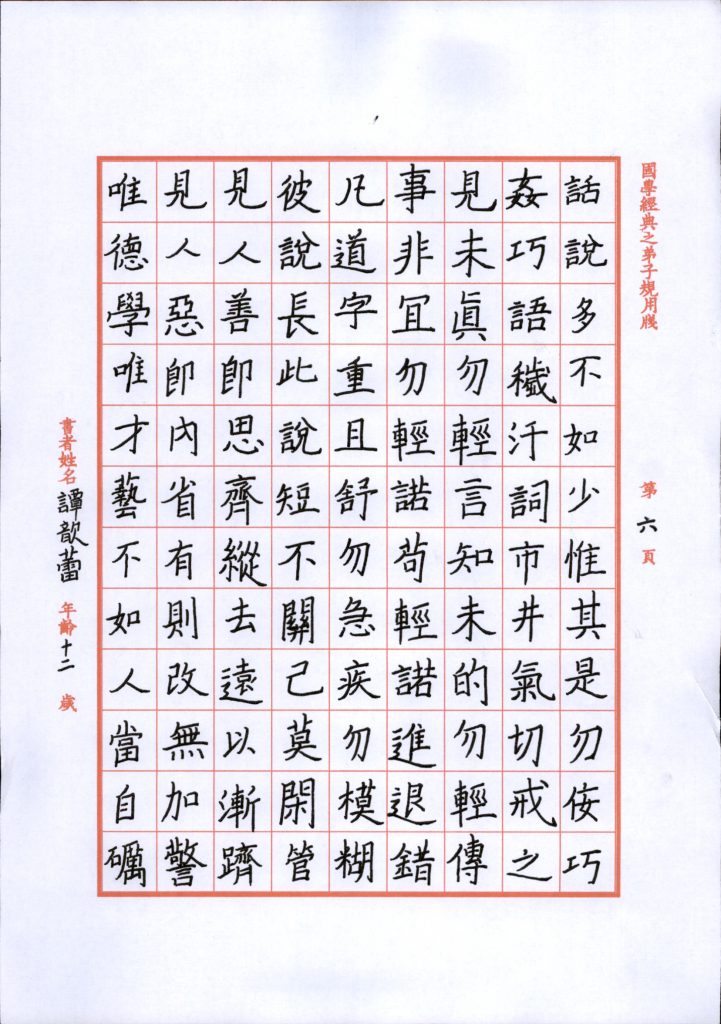 國學經典之弟子規用牋
第六頁
話說多不如少惟其是勿佞巧
姦巧語穢汙詞市井氣切戒之
見未眞勿輕言知未的勿輕傳
事非冝勿輕諾茍輕諾進退錯
凡道字重且舒勿急疾勿模糊
彼說長此說短不關己莫閑管
見人善即思齊縱去遠以漸躋
見人惡即內省有則改無加警
唯德學唯才藝不如人當自礪
書者姓名譚歆蕾年齡十二歲